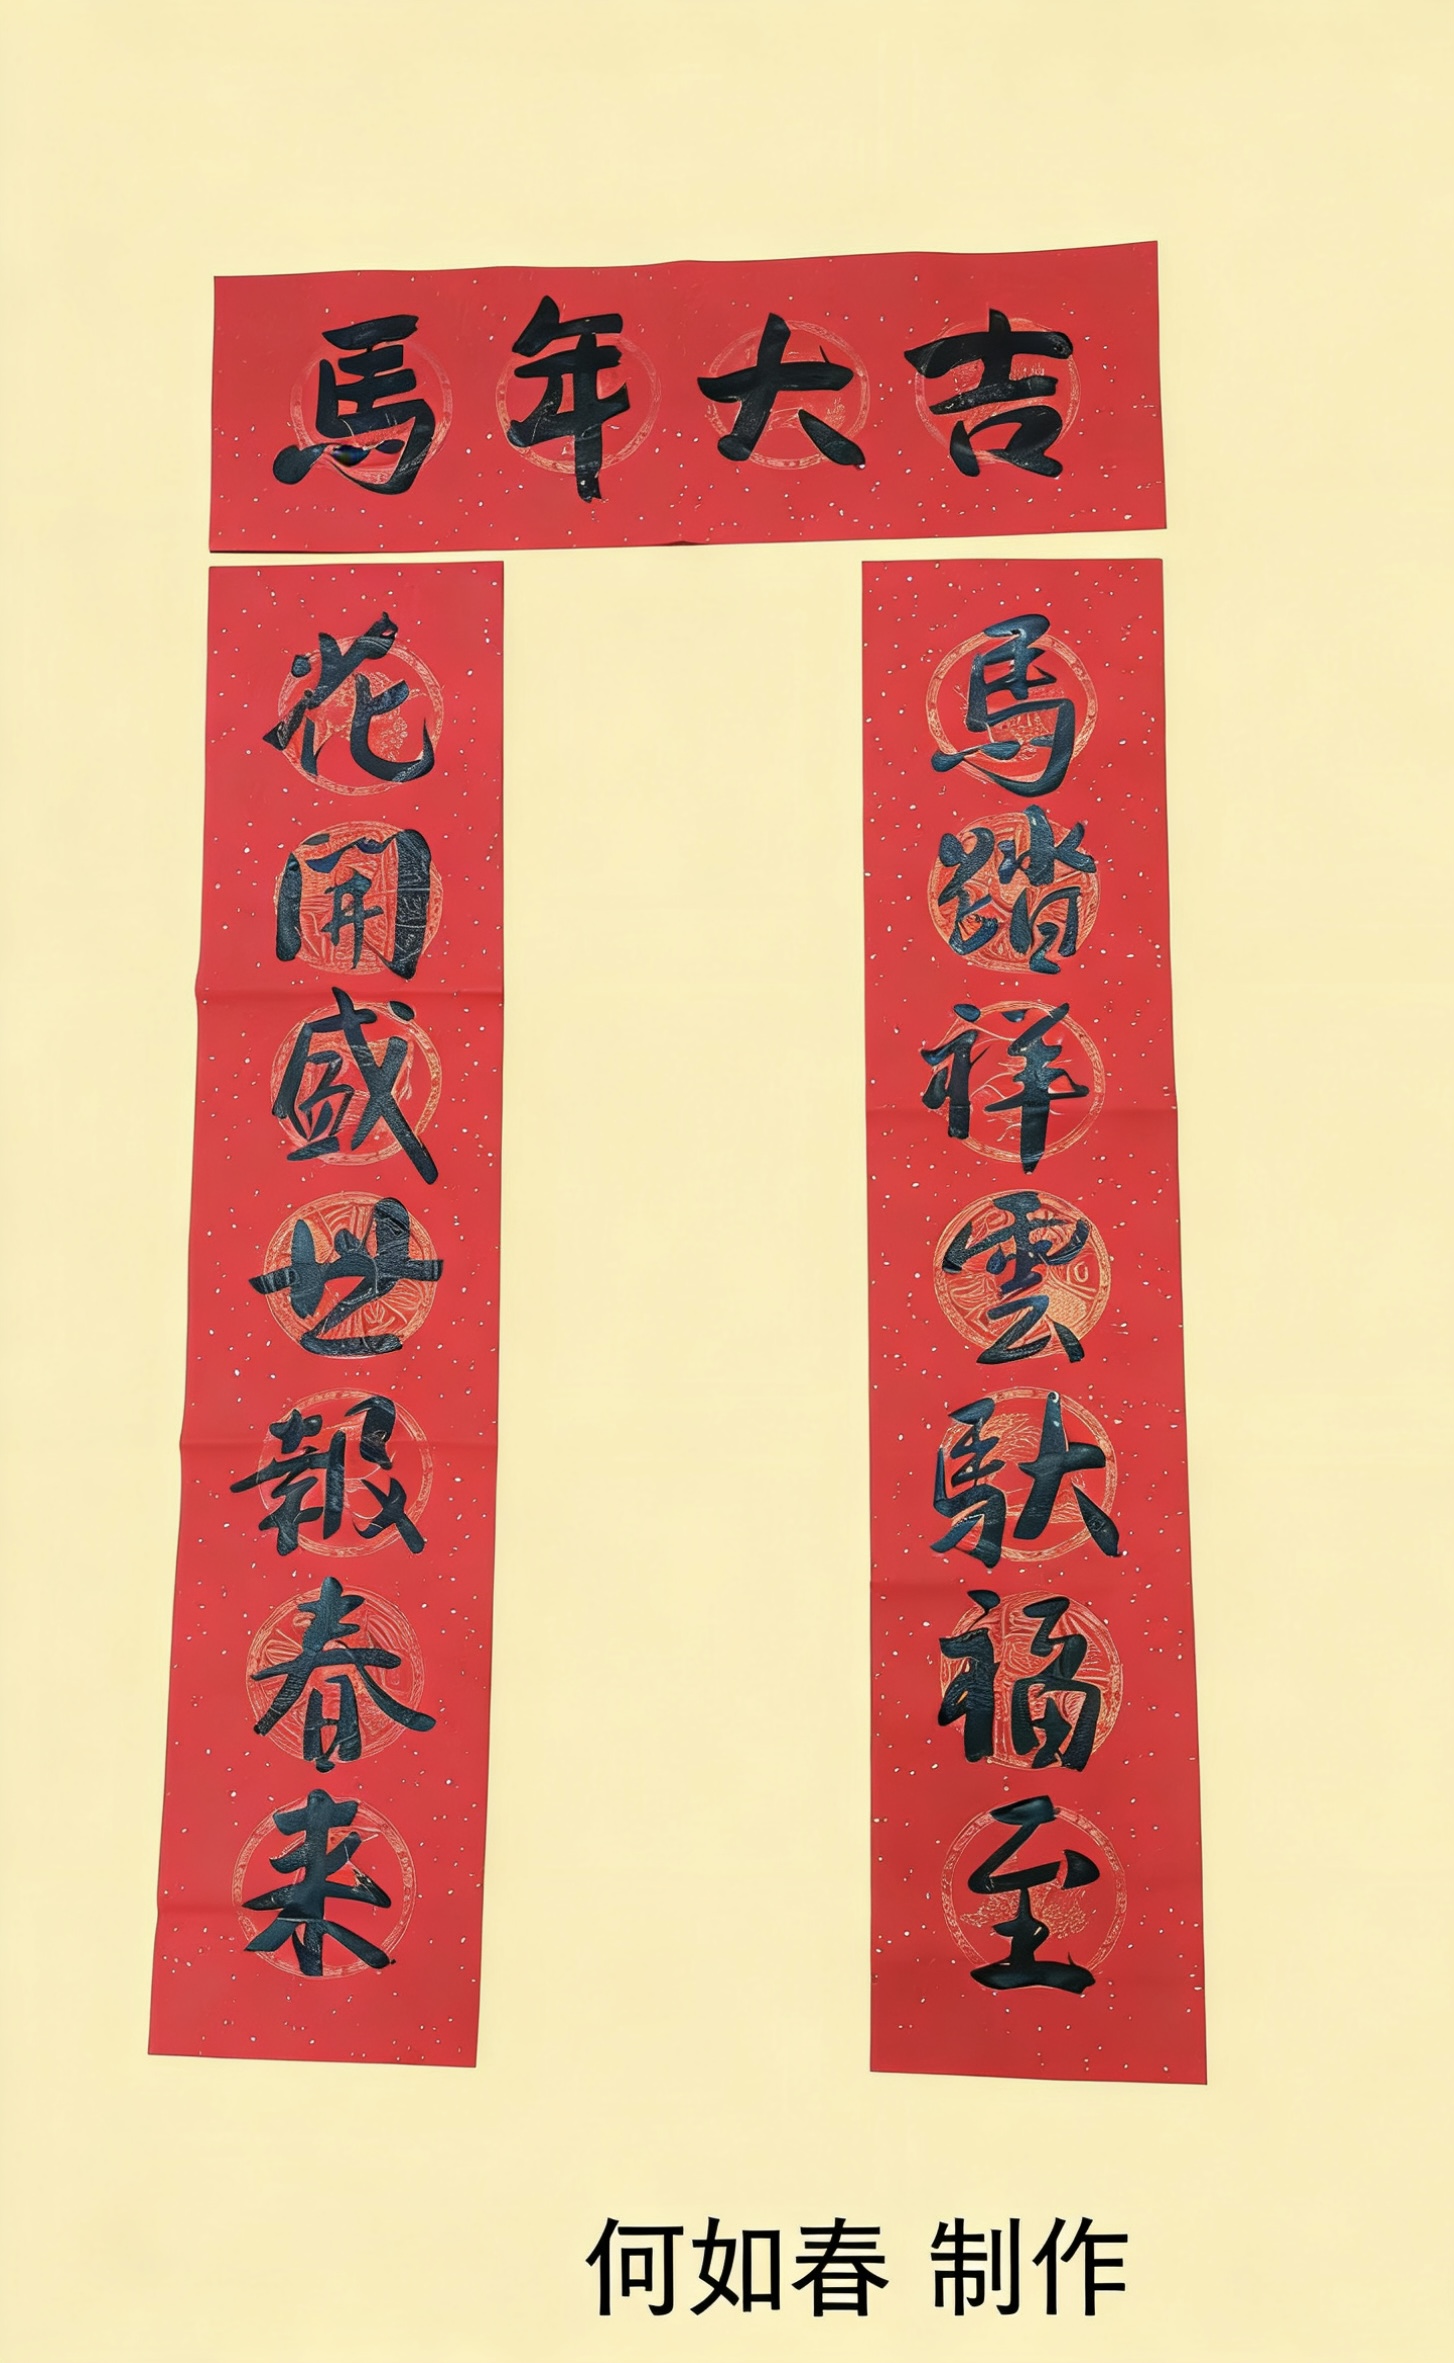 馬年大吉
馬踏祥雲馱福至
花開盛世報春来
何如春 制作